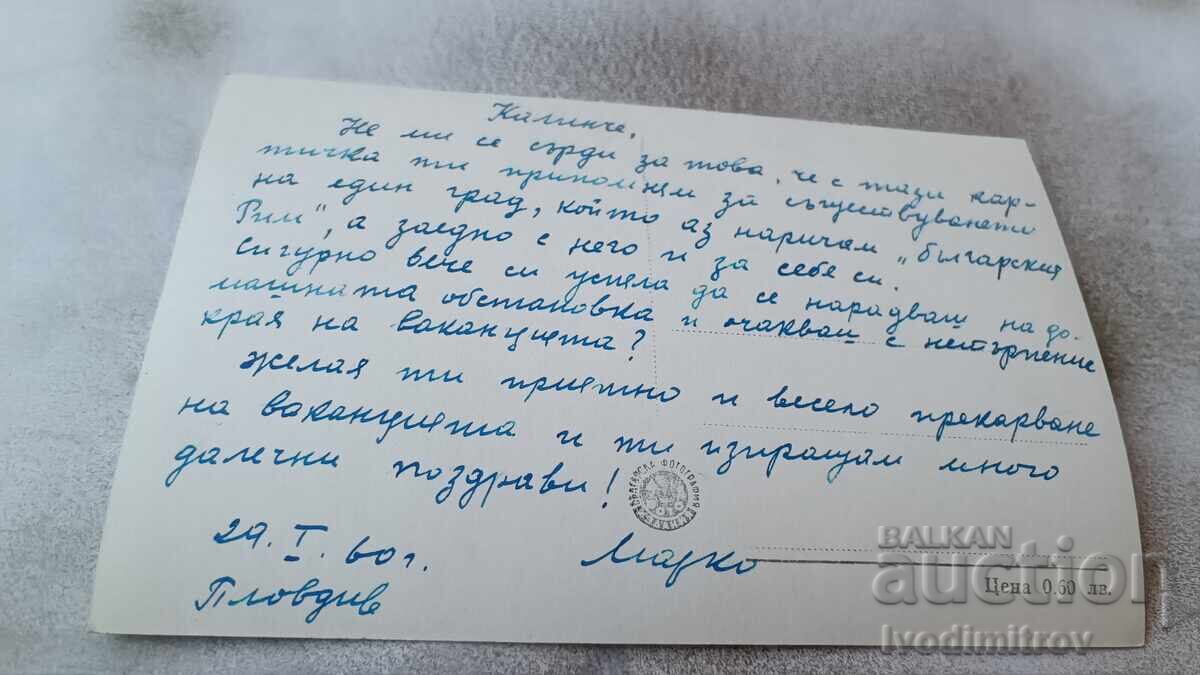 Калинче,
Не ми се сърди за това, че с тази кар-
тичка ти припомням за съществуването
на един град, който аз наричам „българския
Рим", а заедно с него и за себе си.
Сигурно вече си успяла да се нарадваш на до-
машната обстановка и очакваш с нетърпение
края на ваканцията?
Желая ти приятно и весело прекарване
на ваканцията и ти изпращам много
далечни поздрави!
БЪЛГАРСКА ФОТОГРАФИЯ
29.I.60 г.
Пловдив
Цена 0.60 лв.
BALKAN
auction
Ivodimitrov